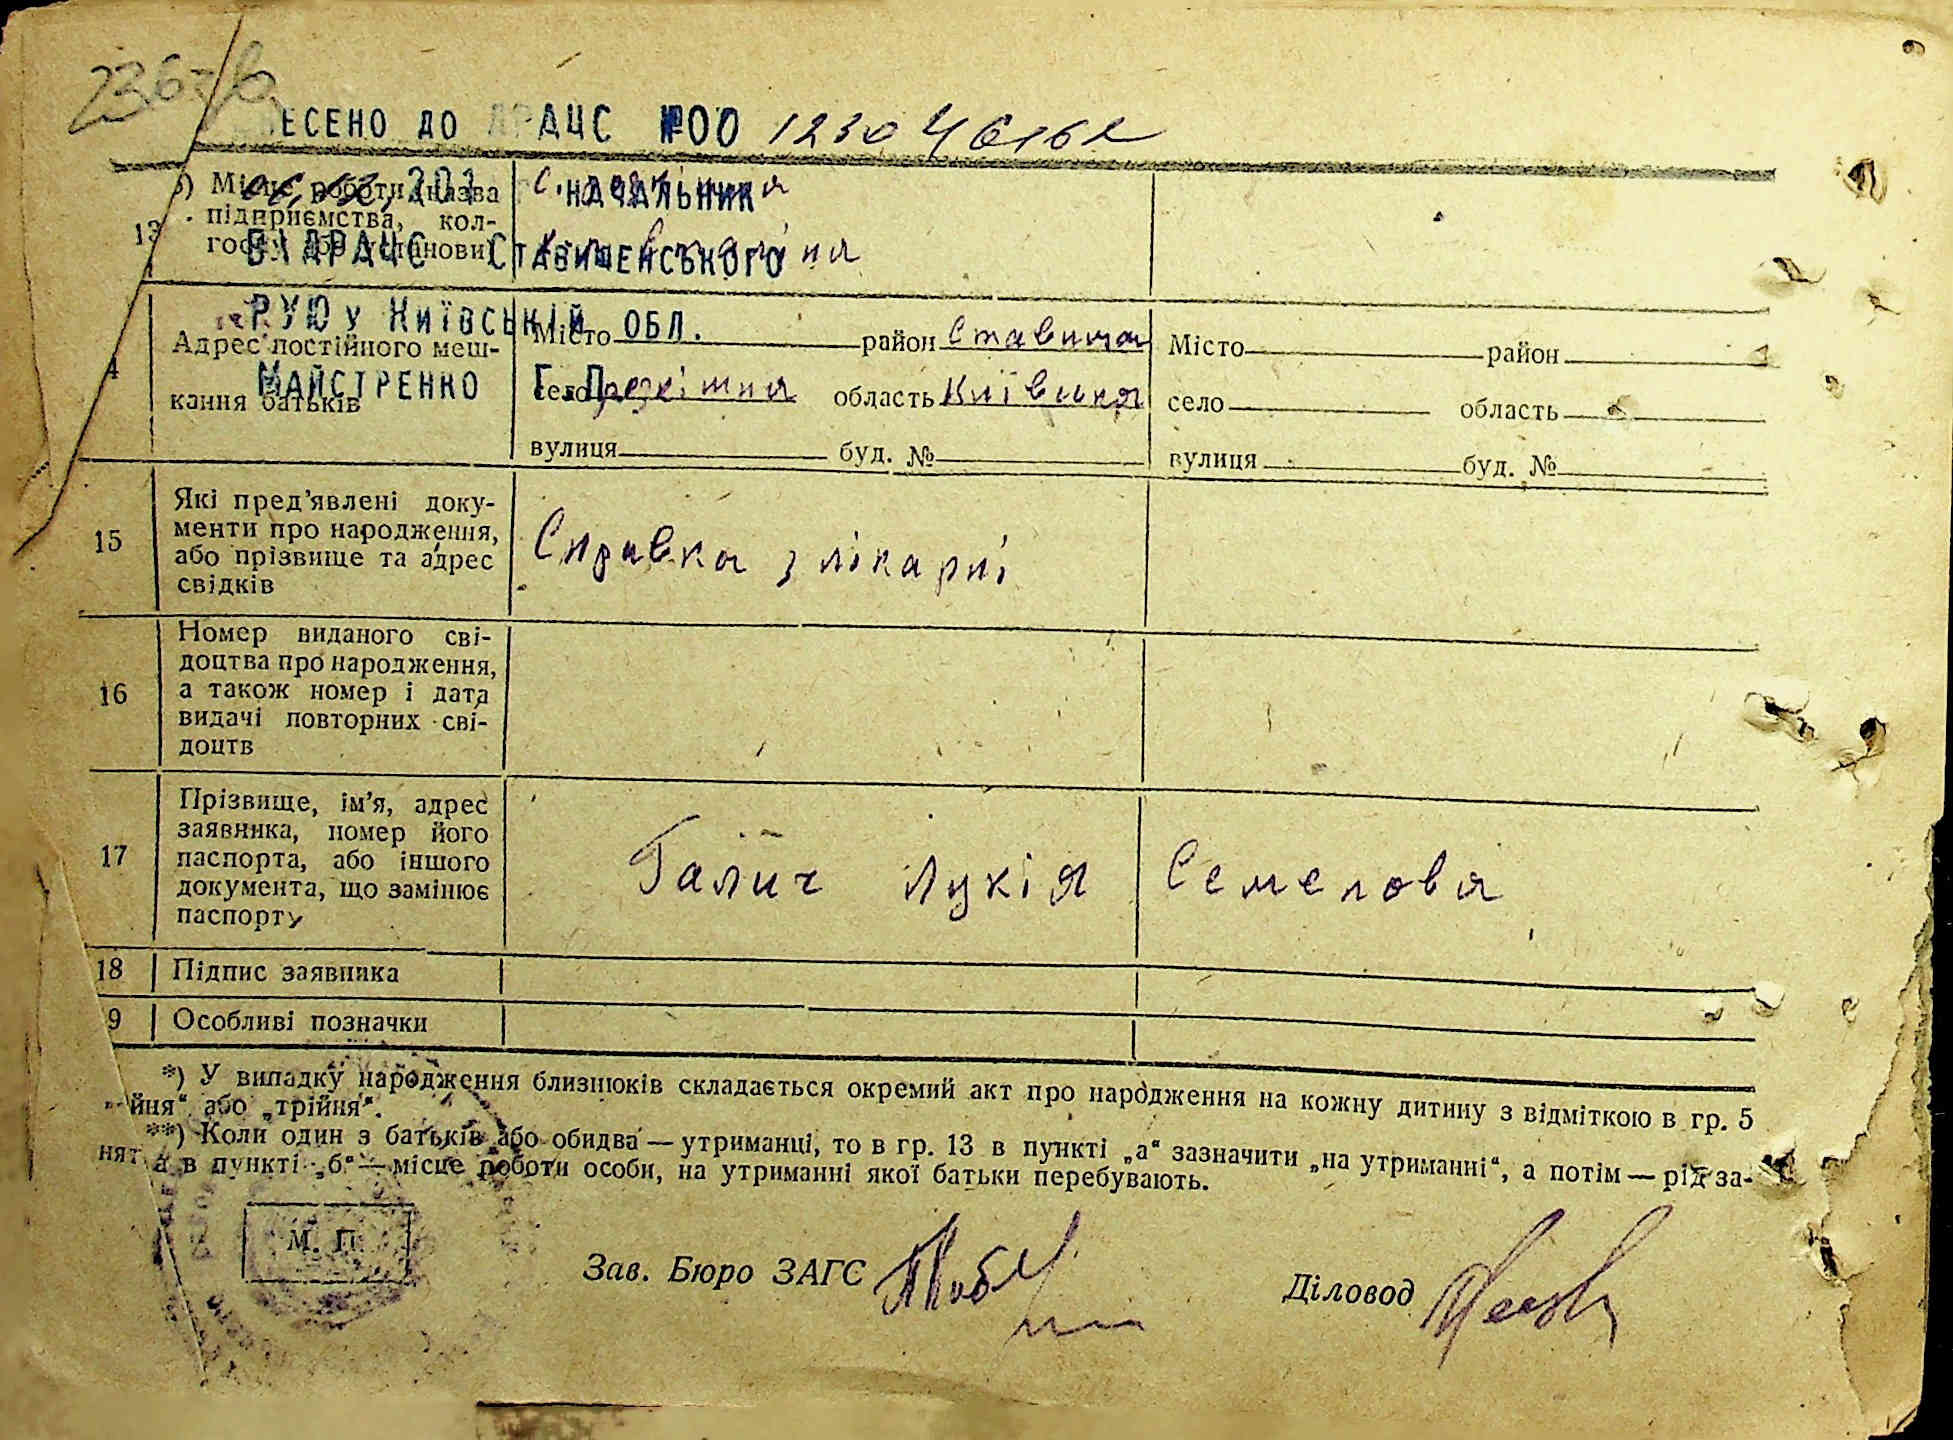 ЕСЕНО ДО ДРАЦС №00 1230
) Місце роботи (назва
підприємства, кол-
НАЧАЛЬНИК
13
ВІДРАЦС СТАВИЩЕНСЬКОГО
РУЮ у КИЇВСЬКІЙ ОБЛ.
4 Адрес постійного меш-
кання батьків
МАЙСТРЕНКО Г.
Місто район Ставища
село область Київська
вулиця буд. №
Місто район
село область
вулиця буд. №
15 Які пред’явлені доку-
менти про народження,
або прізвище та адрес
свідків
Справка з лікарні
16 Номер виданого сві-
доцтва про народження,
а також номер і дата
видачі повторних сві-
доцтв
17 Прізвище, ім’я, адрес
заявника, номер його
паспорта, або іншого
документа, що замінює
паспорт
Галич Лукія Семенова
18 Підпис заявника
9 Особливі позначки
*) У випадку народження близнюків складається окремий акт про народження на кожну дитину з відміткою в гр. 5
йня“ або „трійня“.
**) Коли один з батьків або обидва — утриманці, то в гр. 13 в пункті „а“ зазначити „на утриманні“, а потім — рід за-
нят а в пункті „б“ — місце роботи особи, на утриманні якої батьки перебувають.
М. П.
Зав. Бюро ЗАГС
Діловод